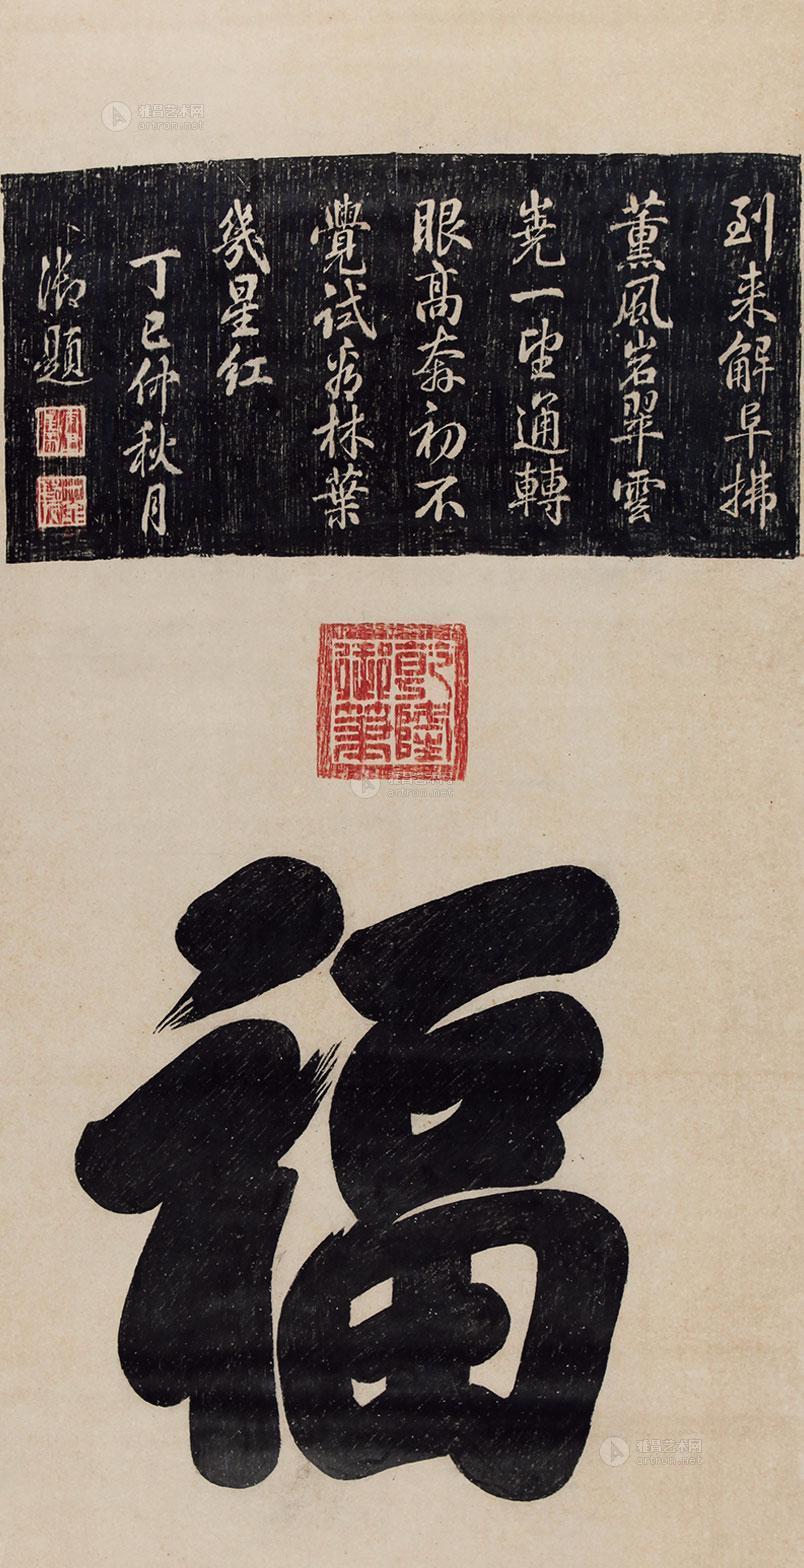 到来解早拂
薰風岩翠雲
嶤一望通轉
眼高奔初不
覺試看林葉
幾星红
丁巳仲秋月
御題
乾隆
御筆
福
雅昌艺术网
artron.net
雅昌艺术网
artron.net
雅昌艺术网
artron.net